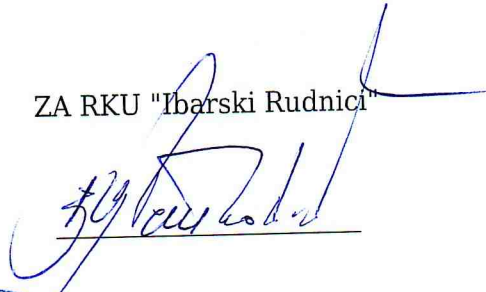 ZA RKU "Ibarski Rudnici"